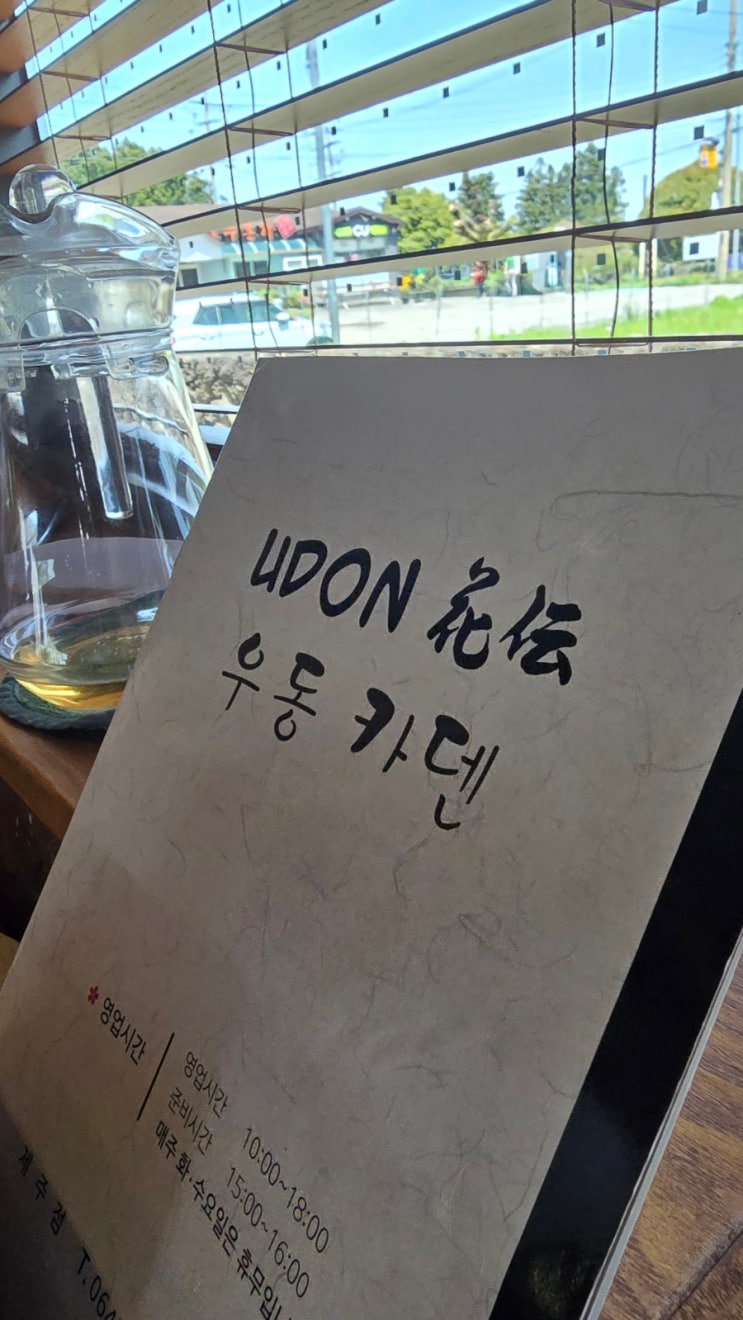 CU
UDON 花伝
우동 카덴
영업시간
영업시간 10:00~18:00
준비시간 15:00~16:00
매주 화·수요일은 휴무입니
제주점 T.064